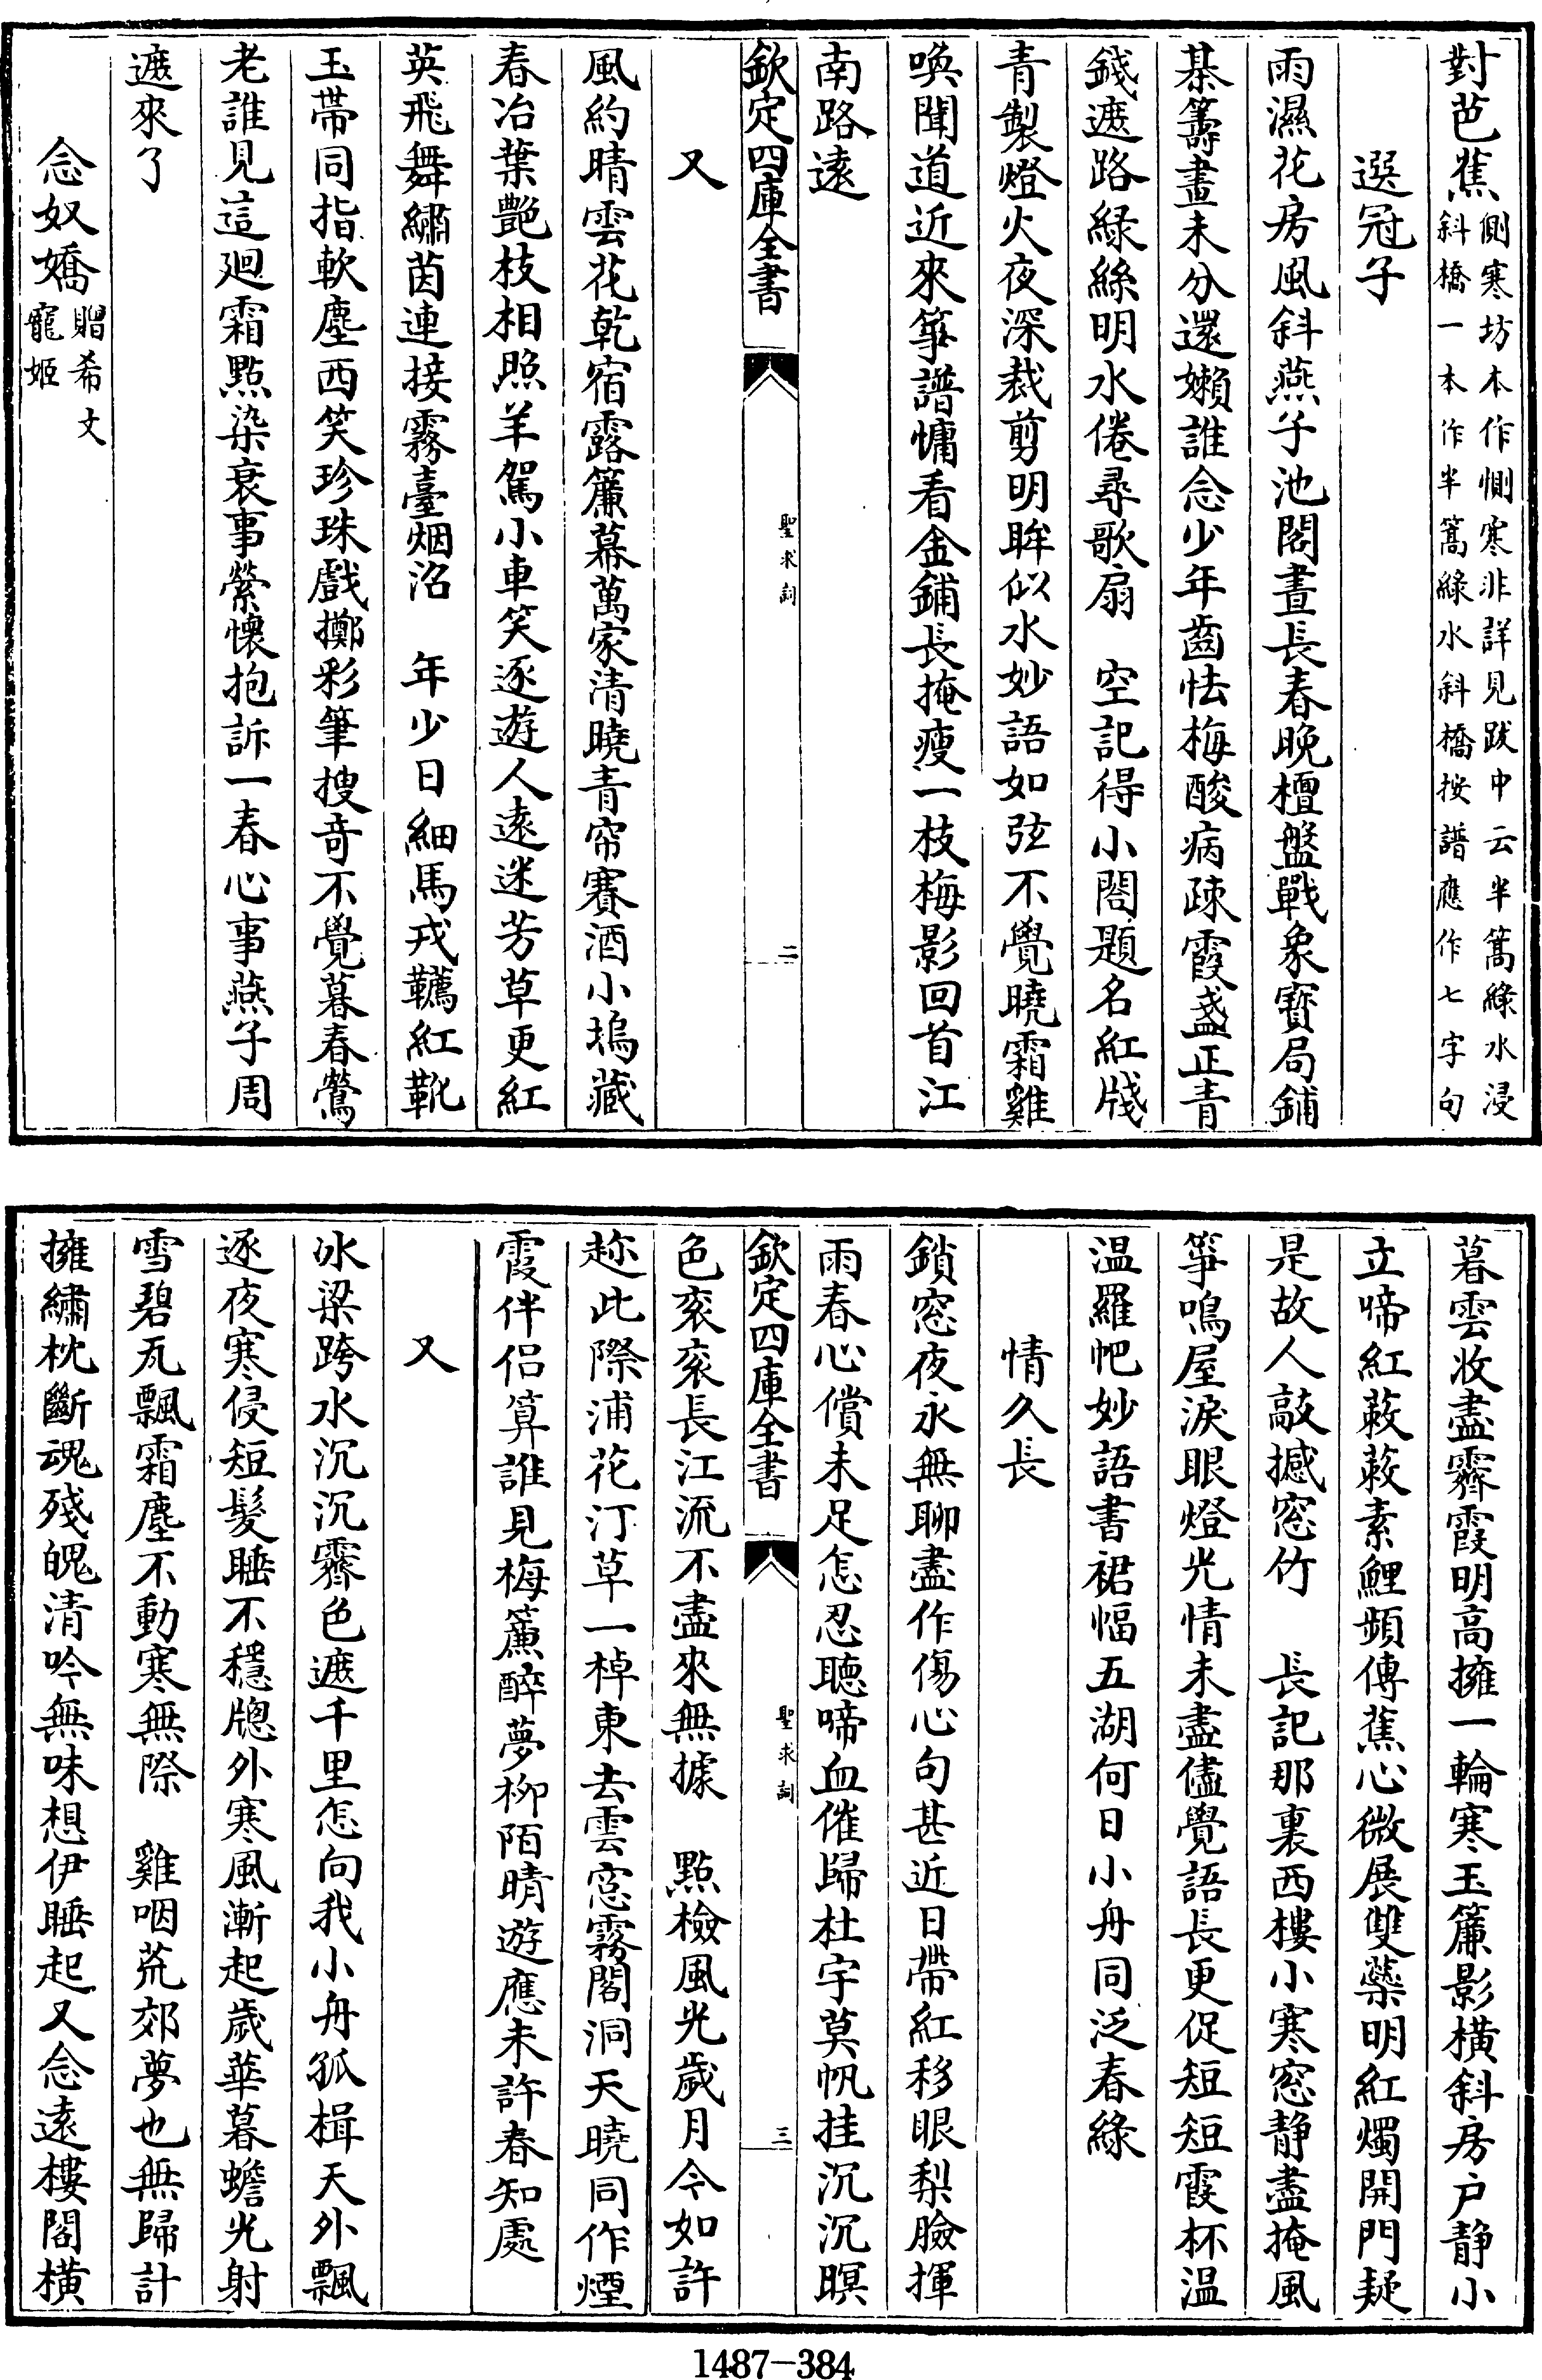 對芭蕉側寒坊本作惻寒非詳見跋中云半篙綠水浸
斜橋一本作半篙綠水斜橋按譜應作七字句
選冠子
雨濕花房風斜燕子池閣晝長春晚檀盤戰象寶局鋪
棊籌畫未分還嬾誰念少年齒怯梅酸病疎霞盞正青
錢遮路綠絲明水倦尋歌扇　空記得小閣題名紅牋
青製燈火夜深裁剪明眸似水妙語如弦不覺曉霜雞
喚聞道近來箏譜慵看金鋪長掩瘦一枝梅影回首江
南路遠
欽定四庫全書　聖求詞　二
又
風約晴雲花乾宿露簾幕萬家清曉青帘賽酒小塢藏
春冶葉艷枝相照羊駕小車笑逐遊人遠迷芳草更紅
英飛舞繡茵連接霧臺烟沼　年少日細馬戎韉紅靴
玉帶同指軟塵西笑珍珠戲擲彩筆搜奇不覺暮春鶯
老誰見這廻霜點染衰事縈懷抱訴一春心事燕子周
遮來了
念奴嬌贈希文
寵姬
暮雲收盡霽霞明高擁一輪寒玉簾影橫斜房户静小
立啼紅蔌蔌素鯉頻傳蕉心微展雙蘂明紅燭開門疑
是故人敲撼窓竹　長記那裏西樓小寒窓静盡掩風
箏鳴屋淚眼燈光情未盡儘覺語長更促短短霞杯温
温羅帊妙語書裙幅五湖何日小舟同泛春綠
情久長
鎖窓夜永無聊盡作傷心句甚近日帶紅移眼梨臉揮
雨春心償未足怎忍聽啼血催歸杜宇莫帆挂沉沉暝
欽定四庫全書　聖求詞　三
色衮衮長江流不盡來無據　點檢風光歲月今如許
趂此際浦花汀草一棹東去雲窓霧閣洞天曉同作煙
霞伴侣算誰見梅簾醉夢柳陌晴遊應未許春知處
又
冰梁跨水沉沉霽色遮千里怎向我小舟孤楫天外飄
逐夜寒侵短髮睡不穩牕外寒風漸起歲華暮蟾光射
雪碧瓦飄霜塵不動寒無際　雞咽荒郊夢也無歸計
擁繡枕斷魂殘魄清吟無味想伊睡起又念遠樓閣橫
1487-384